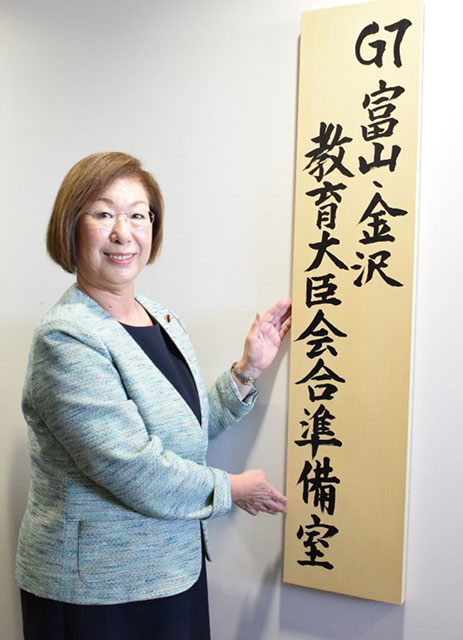 G7富山・金沢
教育大臣会合準備室